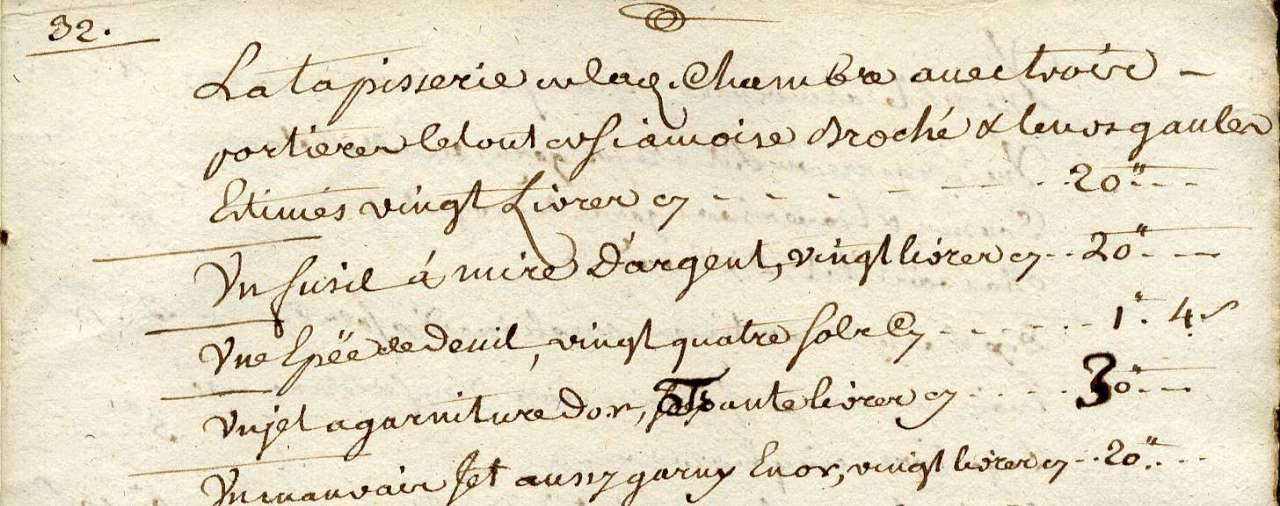 32.
La tapisserie en lad. Chambre avec trois
portieres le tout en siamoise Broché & leurs gaules
Estimés vingt Livres cy - - - 20"
Un fusil à mire D'argent, vingt livres cy - - 20"
Une Epëe de deuil, vingt quatre sols Cy - - - 1" 4s
un jet a garniture Dor, trante livres cy - - - 30"
Un mauvais Jet aussy garny En or, vingt livres cy - - 20"